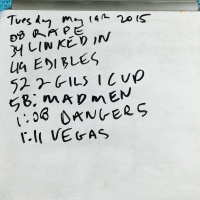 Tuesday May 19th 2015
08 RAPE
34 LINKED IN
49 EDIBLES
52 2 GILS 1 CUP
58: MAD MEN
1:08 DANGERS
1:11 VEGAS